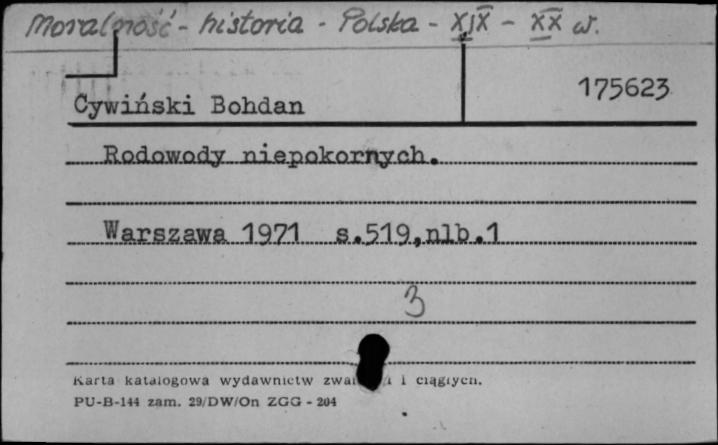 Moralność - historia - Polska - XIX - XX w.
175623
Cywiński Bohdan
Rodowody niepokornych.
Warszawa 1971 s.519,nlb.1
3
Karta katalogowa wydawnictw i ciągłych.
PU-B-144 zam. 29/DW/On ZGG - 204